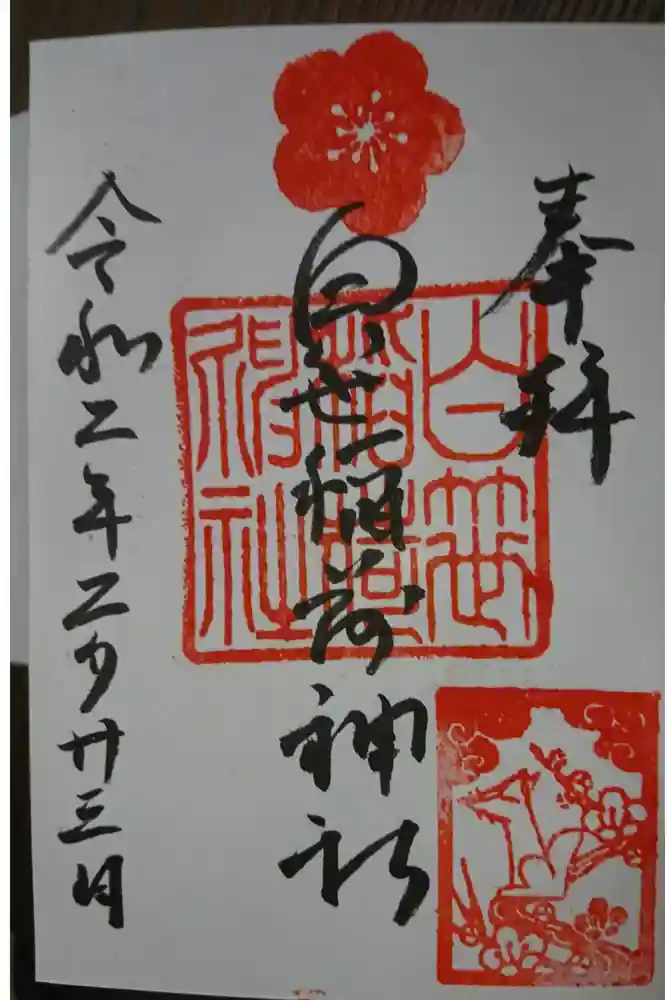 奉拝
白笹稲荷神社
令和二年二月廿三日
白笹
稲荷
神社